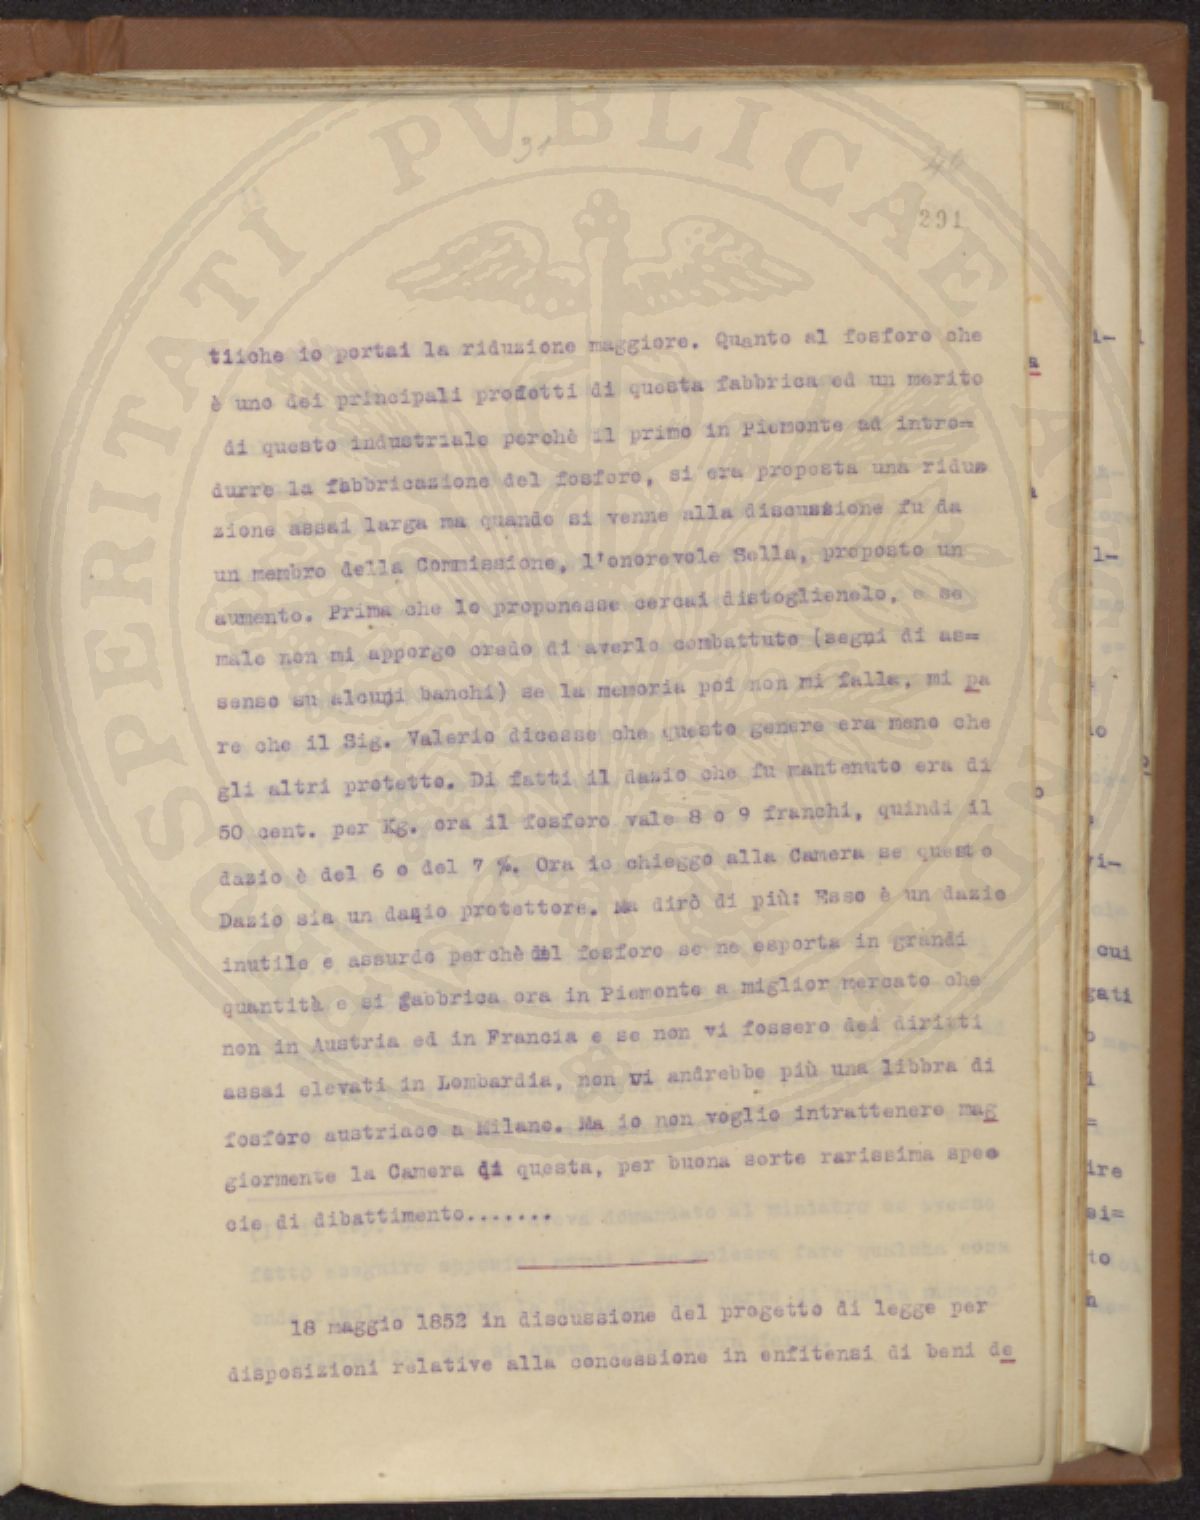 31
46
291
tiiche io portai la riduzione maggiore. Quanto al fosforo che
è uno dei principali prodotti di questa fabbrica ed un merito
di questo industriale perchè il primo in Piemonte ad intro=
durre la fabbricazione del fosforo, si era proposta una ridu=
zione assai larga ma quando si venne alla discussione fu da
un membro della Commissione, l'onorevole Sella, proposto un
aumento. Prima che lo proponesse cercai distoglienelo, e se
male non mi appergo credo di averlo combattuto (segni di as=
senso su alcuni banchi) se la memoria poi non mi falla, mi pa
re che il Sig. Valerio dicesse che questo genere era meno che
gli altri protetto. Di fatti il dazio che fu mantenuto era di
50 cent. per Kg. ora il fosforo vale 8 o 9 franchi, quindi il
dazio è del 6 o del 7 %. Ora io chieggo alla Camera se questo
Dazio sia un dazio protettore. Ma dirò di più: Esso è un dazio
inutile e assurdo perchè del fosforo se ne esporta in grandi
quantità e si fabbrica ora in Piemonte a miglior mercato che
non in Austria ed in Francia e se non vi fossero dei diritti
assai elevati in Lombardia, non vi andrebbe più una libbra di
fosforo austriaco a Milano. Ma io non voglio intrattenere mag
giormente la Camera di questa, per buona sorte rarissima spec
cie di dibattimento.......
18 maggio 1852 in discussione del progetto di legge per
disposizioni relative alla concessione in enfitensi di beni de